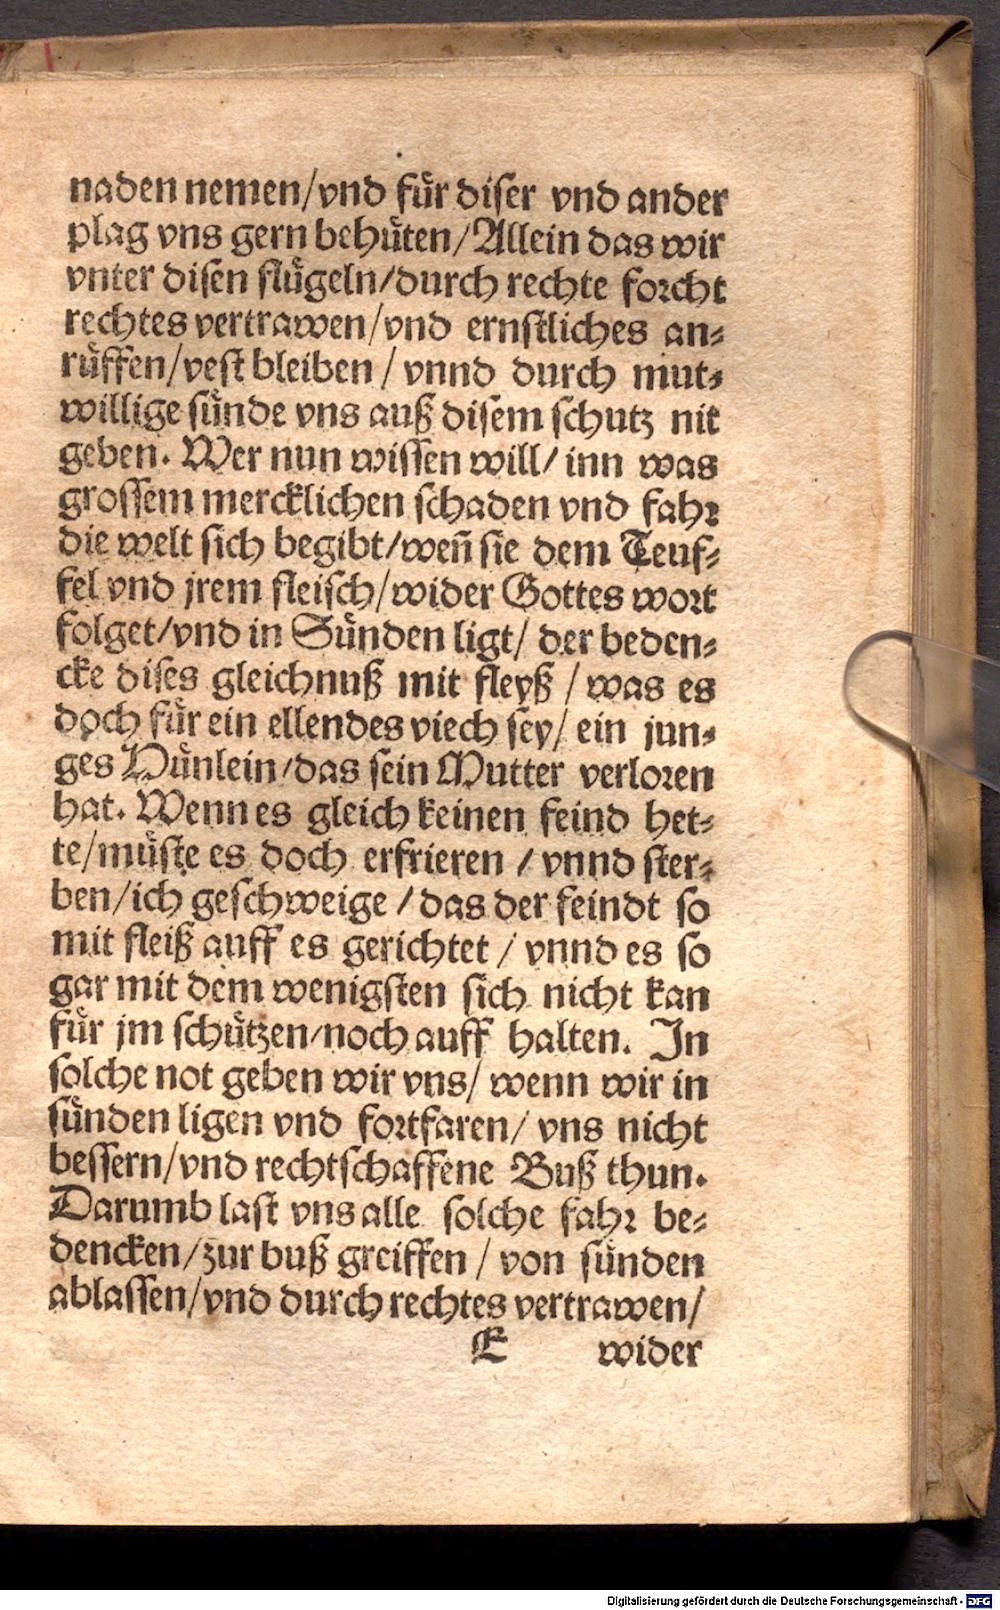 naden nemen/vnd fuͤr diser vnd ander
plag vns gern behuͤten/Allein das wir
vnter disen fluͤgeln/durch rechte forcht
rechtes vertrawen/vnd ernstliches an⸗
ruͤffen/vest bleiben / vnnd durch mut⸗
willige suͤnde vns auß disem schutz nit
geben. Wer nun wissen will/ inn was
grossem mercklichen schaden vnd fahr
die welt sich begibt/weñ sie dem Teuf⸗
fel vnd jrem fleisch/wider Gottes wort
folget/vnd in Suͤnden ligt/ der beden⸗
cke dises gleichnuß mit fleyß / was es
doch fuͤr ein ellendes viech sey/ ein jun⸗
ges Huͤnlein/das sein Mutter verloren
hat. Wenn es gleich keinen feind het⸗
te/muͤste es doch erfrieren / vnnd ster⸗
ben/ich geschweige / das der feindt so
mit fleiß auff es gerichtet / vnnd es so
gar mit dem wenigsten sich nicht kan
fuͤr jm schuͤtzen/noch auff halten. In
solche not geben wir vns/ wenn wir in
suͤnden ligen vnd fortfaren/ vns nicht
bessern/vnd rechtschaffene Buß thun.
Darumb last vns alle solche fahr be⸗
dencken/zur buß greiffen / von suͤnden
ablassen/vnd durch rechtes vertrawen/
E wider
Digitalisierung gefördert durch die Deutsche Forschungsgemeinschaft - DFG